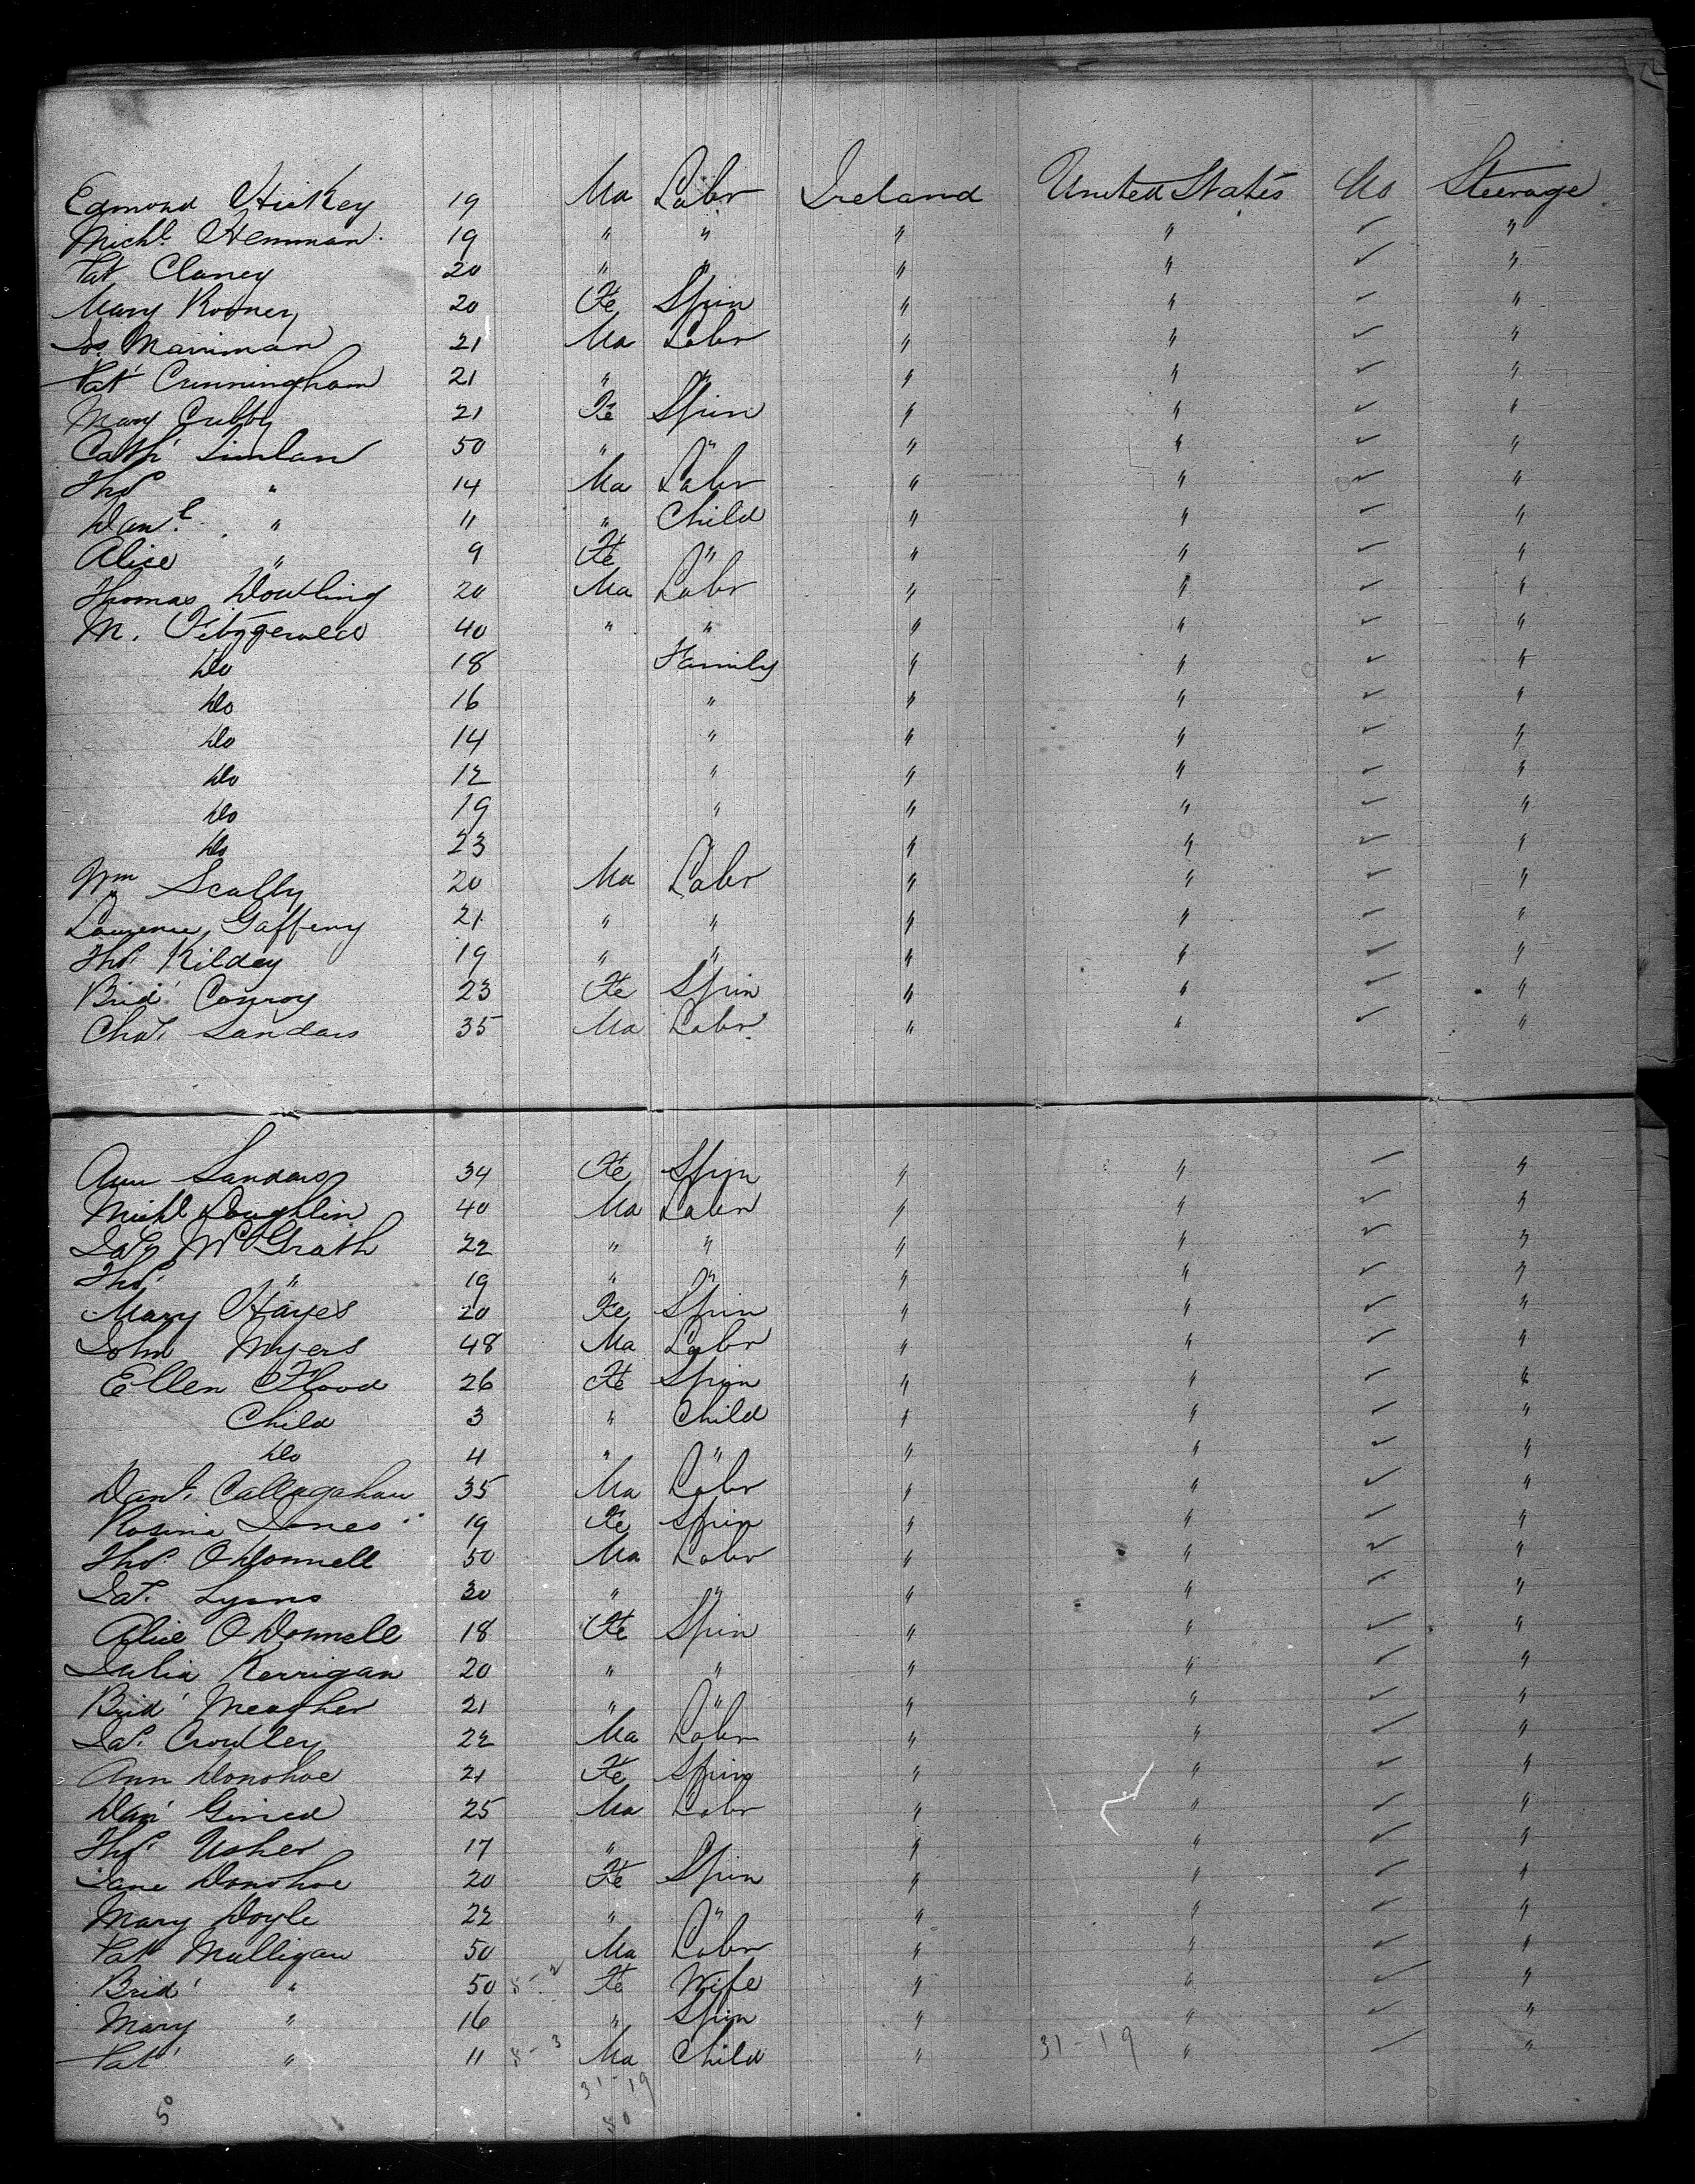 Edmond Hickey 19 Ma Labr Ireland United States No Steerage
Michl. Hemman 19 " " " " ✓ "
Pat Clancy 20 " " " " ✓ "
Mary Rooney 20 Fe Spin " " ✓ "
Jos. Marriman 21 Ma Labr " " ✓ "
Pat Cunningham 21 " " " " ✓ "
Mary Cubby 21 Fe Spin " " ✓ "
Cath Timlan 50 " " " " ✓ "
Thos " 14 Ma Labr " " ✓ "
Danl. " 11 " Child " " ✓ "
Alice " 9 Fe " " " ✓ "
Thomas Dowling 20 Ma Labr " " ✓ "
M. Fitzgerald 40 " " " " ✓ "
Do 18 Family " " ✓ "
Do 16 " " " ✓ "
Do 14 " " " ✓ "
Do 12 " " " ✓ "
Do 19 " " " ✓ "
Do 23 " " " ✓ "
Wm Scally 20 Ma Labr " " ✓ "
Lawrence Gaffeny 21 " " " " ✓ "
Thos. Kildey 19 " " " " ✓ "
Brid Conroy 23 Fe Spin " " ✓ "
Chas. Sandars 35 Ma Labr " " ✓ "
Ann Sandars 34 Fe Spin " " ✓ "
Michl Loughlin 40 Ma Labr " " ✓ "
Jas McGrath 22 " " " " ✓ "
Thos. " 19 " " " " ✓ "
Mary Hayes 20 Fe Spin " " ✓ "
John Myers 48 Ma Labr " " ✓ "
Ellen Flood 26 Fe Spin " " ✓ "
Child 3 " Child " " ✓ "
Do 4 " " " " ✓ "
Danl. Callagahan 35 Ma Labr " " ✓ "
Rosina Jones 19 Fe Spin " " ✓ "
Thos. O'Donnell 50 Ma Labr " " ✓ "
Jas. Lyons 30 " " " " ✓ "
Alice O'Donnell 18 Fe Spin " " ✓ "
Julia Kerrigan 20 " " " " ✓ "
Brid Meagher 21 " " " " ✓ "
Jas. Crowley 22 Ma Labr " " ✓ "
Ann Donohoe 21 Fe Spin " " ✓ "
Dan 25 Ma Labr " " ✓ "
Thos. Usher 17 " " " ✓ "
Jane Donohoe 20 Fe Spin " " ✓ "
Mary Doyle 22 " " " " ✓ "
Pat Mulligan 50 Ma Labr " " ✓ "
Brid " 50 8-2 Fe Wife " " ✓ "
Mary " 16 " Spin " " ✓ "
Pat " 11 8-3 Ma Child " 31-19 " ✓ "
31-19
50